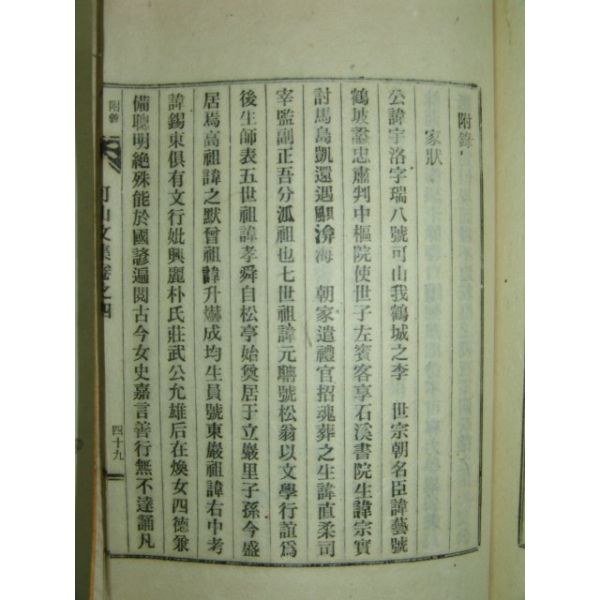 附錄
家狀
公諱宇洛字瑞八號可山我鶴城之李 世宗朝名臣諱藝號
鶴坡諡忠肅判中樞院使世子左賓客享石溪書院生諱宗實
討馬島凱還遇颶渰海 朝家遣禮官招魂葬之生諱直柔司
宰監副正吾分派祖也七世祖諱元聃號松翁以文學行誼爲
後生師表五世祖諱孝舜自松亭始奠居于立巖里子孫今盛
居焉高祖諱之默曾祖諱升爀成均生員號東巖祖諱右中考
諱錫東俱有文行妣興麗朴氏莊武公允雄后在煥女四德兼
備聰明絶殊能於國諺遍閱古今女史嘉言善行無不達誦凡
附錄
可山文集卷之四
四十九